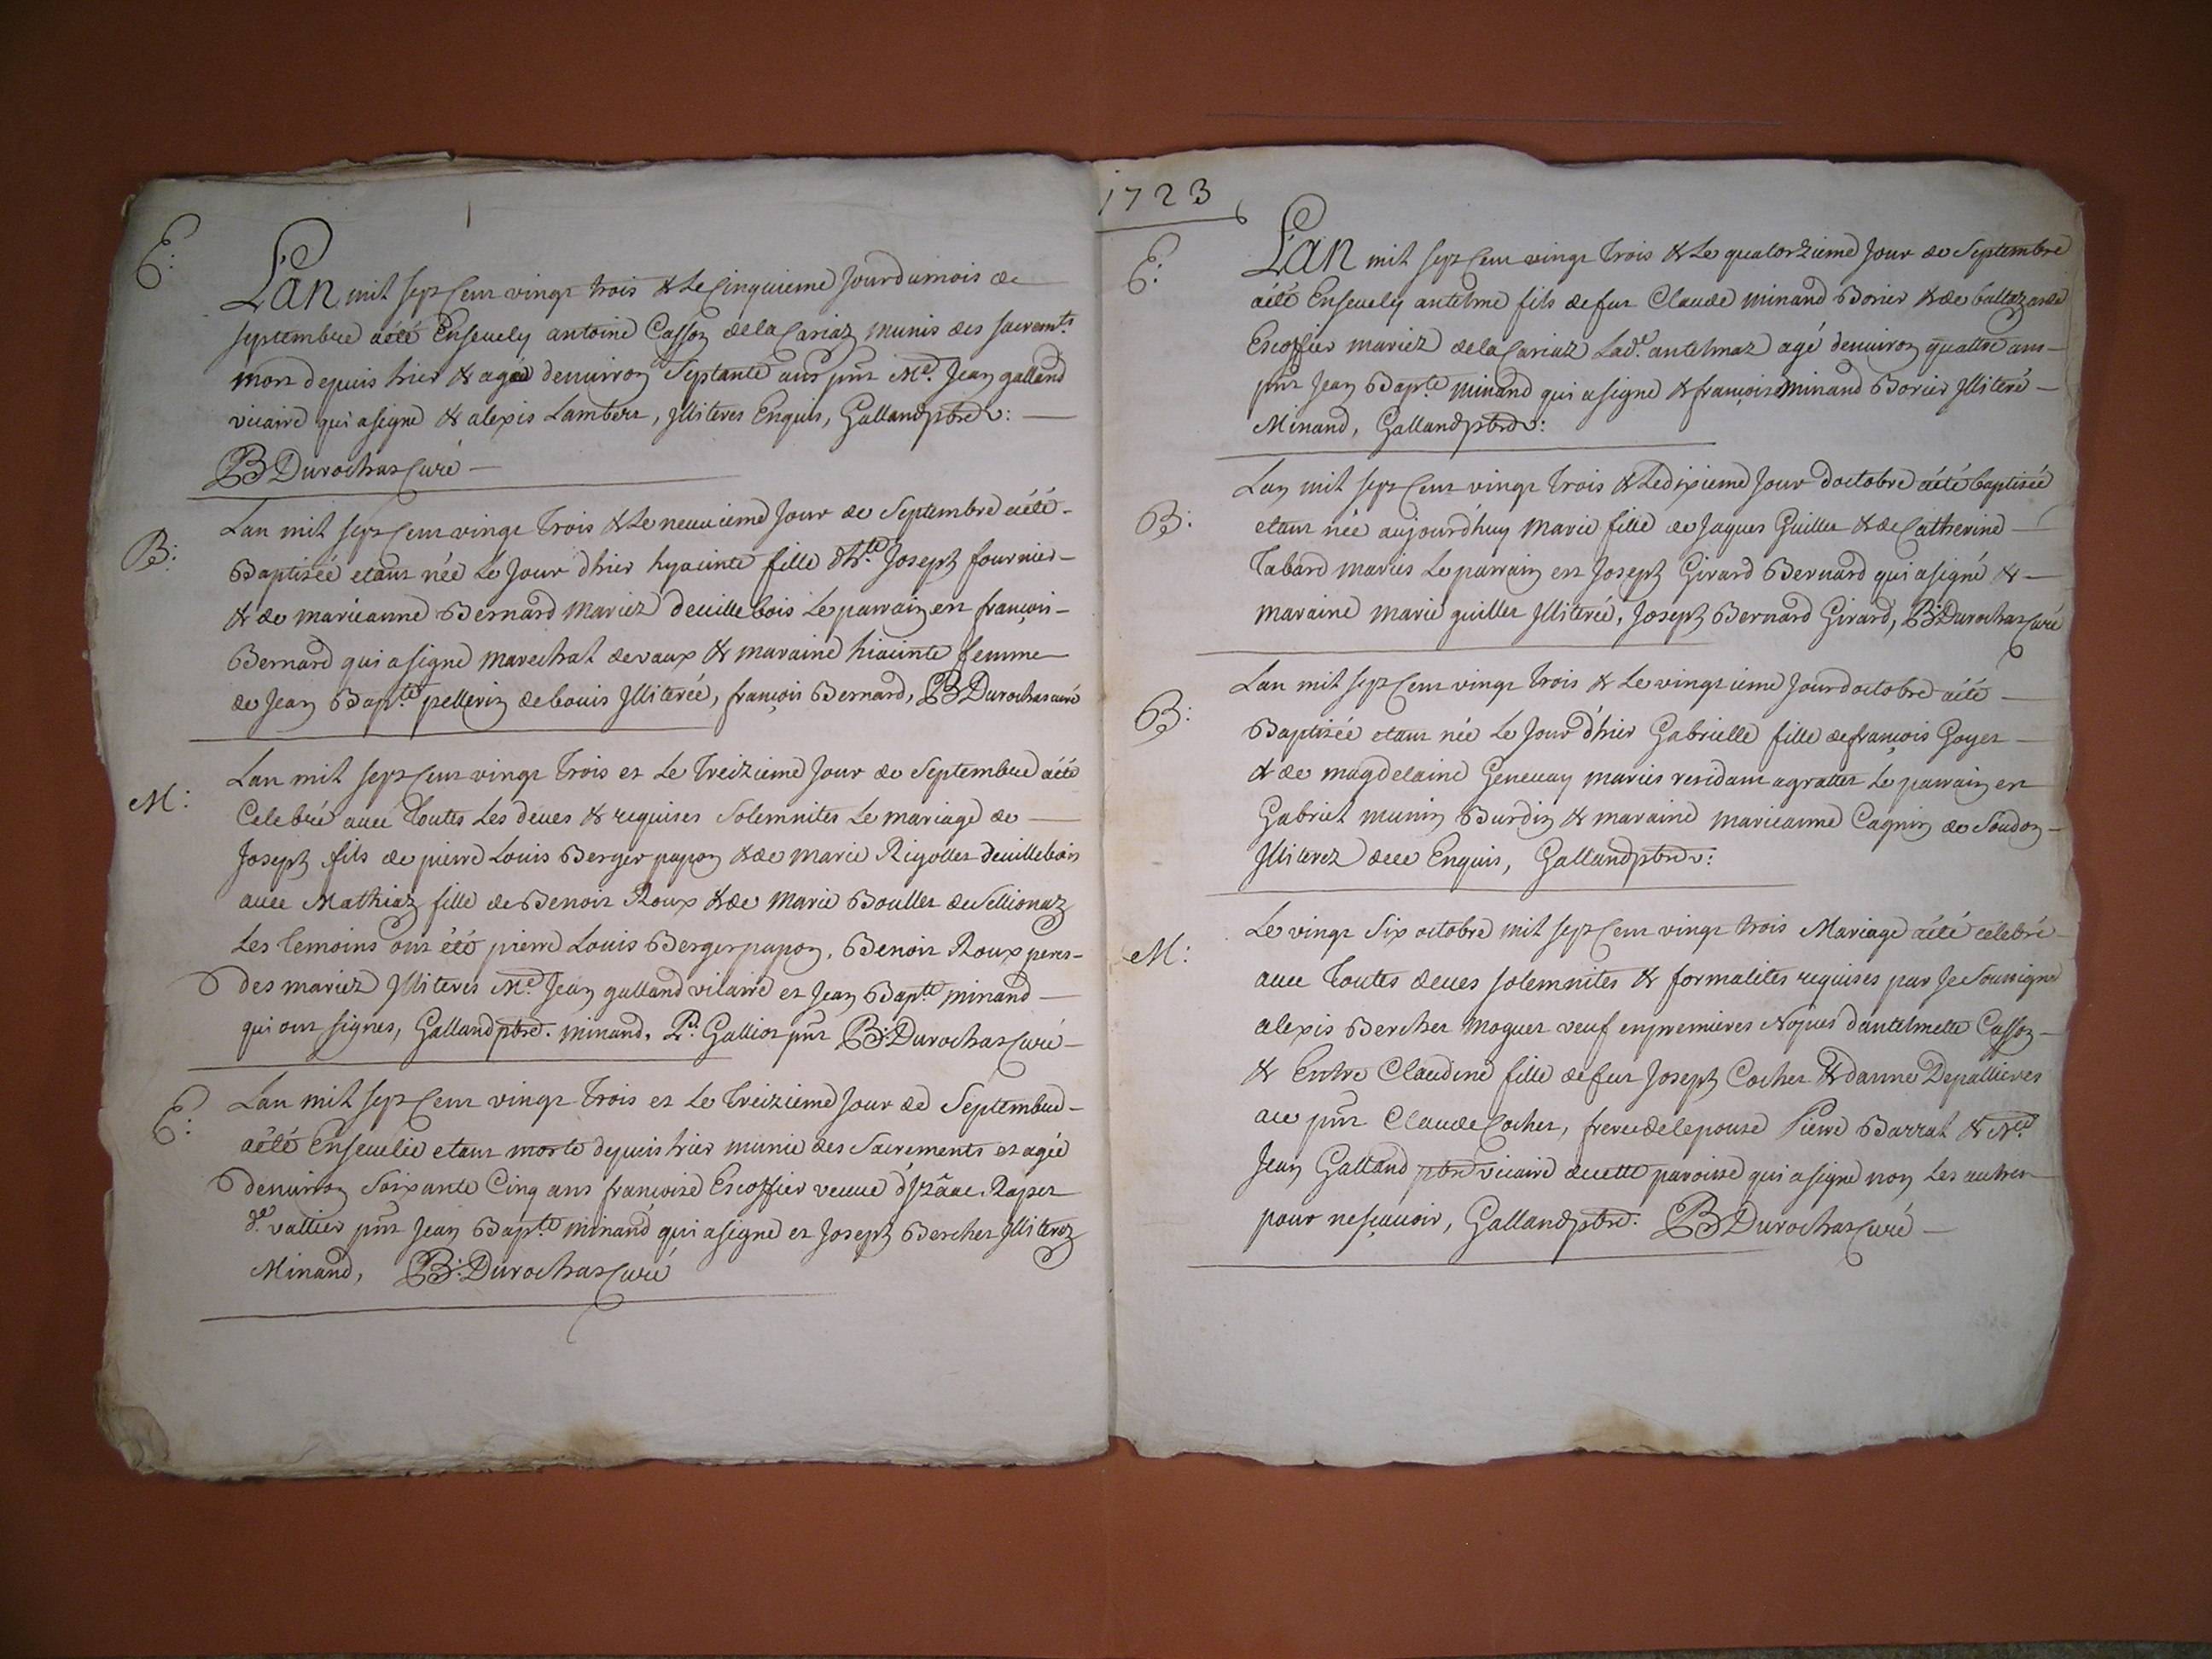 E:
Lan mil sept Cent vingt trois & Le Cinquieme Jour du mois de
septembre aété Enseuely antoine Casson de la Cariaz munis des sacremts
mort depuis hier & agée denuiron Septante ans pnt Me. Jean galland
vicaire qui a signe & alexis Lambert, Illiteres Enquis, Galland ptre v:
B: Durochat Curé
B:
Lan mil sept Cent vingt trois & Le neuuieme Jour de Septembre aété
Baptiseé etant née Le Jour dhier hyacinte fille dhble Joseph fournier
& de marieanne Bernard mariez deuillebois Le parrain est françois
Bernard qui a signe marechal devaux & maraine hiacinte femme
de Jean Bapte pellerin de bouis Illiterée, françois Bernard, B Durochat curé
M:
Lan mil sept Cent vingt trois et Le Treizieme Jour de Septembre aété
Celebré auec Toutes Les deues & requises Solemnites Le mariage de
Joseph fils de pierre Louis Berger papon & de marie Rigollet deuillebois
auec Mathiaz fille de Benoit Roux & de marie Boullet de Sellionaz
Les temoins ont été pierre Louis Berger papon, Benoit Roux peres
des mariez Illiteres Me. Jean galland vicaire et Jean Bapte minand
qui ont signes, Galland ptre. minand. P. Galliot pnt B: Durochat Curé
E:
Lan mil sept Cent vingt Trois et Le Treizieme Jour de Septembre
aété Enseuelie etant morte depuis hier munie des Sacrements et agée
denuiron Soixante Cinq ans françoise Escoffier veuue d'Izâac Rapet
de. vallier pnt Jean Bapte minand qui a signe et Joseph Berchet Illiterez
Minand, B: Durochat Curé
1723
E:
Lan mil sept Cent vingt trois & Le quatorzieme Jour de Septembre
aété Enseuely antelme fils de fut Claude minand Borier & de baltazarde
Escoffier mariez de la Cariaz Lad. antelmaz agé denuiron quattre ans
pnt Jean Bapte minand qui a signe & françoise minand Borier Illiteré
Minand, Galland ptre v:
B:
Lan mil sept Cent vingt trois & Le dixieme Jour doctobre aété baptisée
etant née aujourdhuy marie fille de Jaques Guillet & de Catherine
Tabard mariés Le parrain est Joseph Girard Bernard qui a signé &
maraine marie guillet Illiterée, Joseph Bernard Girard, B: Durochat Curé
B:
Lan mil sept Cent vingt trois & Le vingtieme Jour doctobre aété
Baptiseé etant née Le Jour d'hier Gabrielle fille de françois Goyet
& de magdelaine Geneuay mariés residant a grattet Le parrain est
Gabriel munin Burdin & maraine marieanne Cagnin de Soudon
Illiterez de ce Enquis, Galland ptre v:
M:
Le vingt Six octobre mil sept Cent vingt trois Mariage aété célebré
auec Toutes deues solemnites & formalites requises par Je Soussigne
alexis Berchet moguet veuf en premieres Nopces dantelmette Casson
& Entre Claudine fille de fut Joseph Cochet & danne Depallieres
ace pnt Claude Cochet, frere de lepouse Pierre Barrat & Me
Jean Galland ptre vicaire de cette paroisse qui a signe non Les autres
pour ne sçauoir, Galland ptre: B Durochat Curé